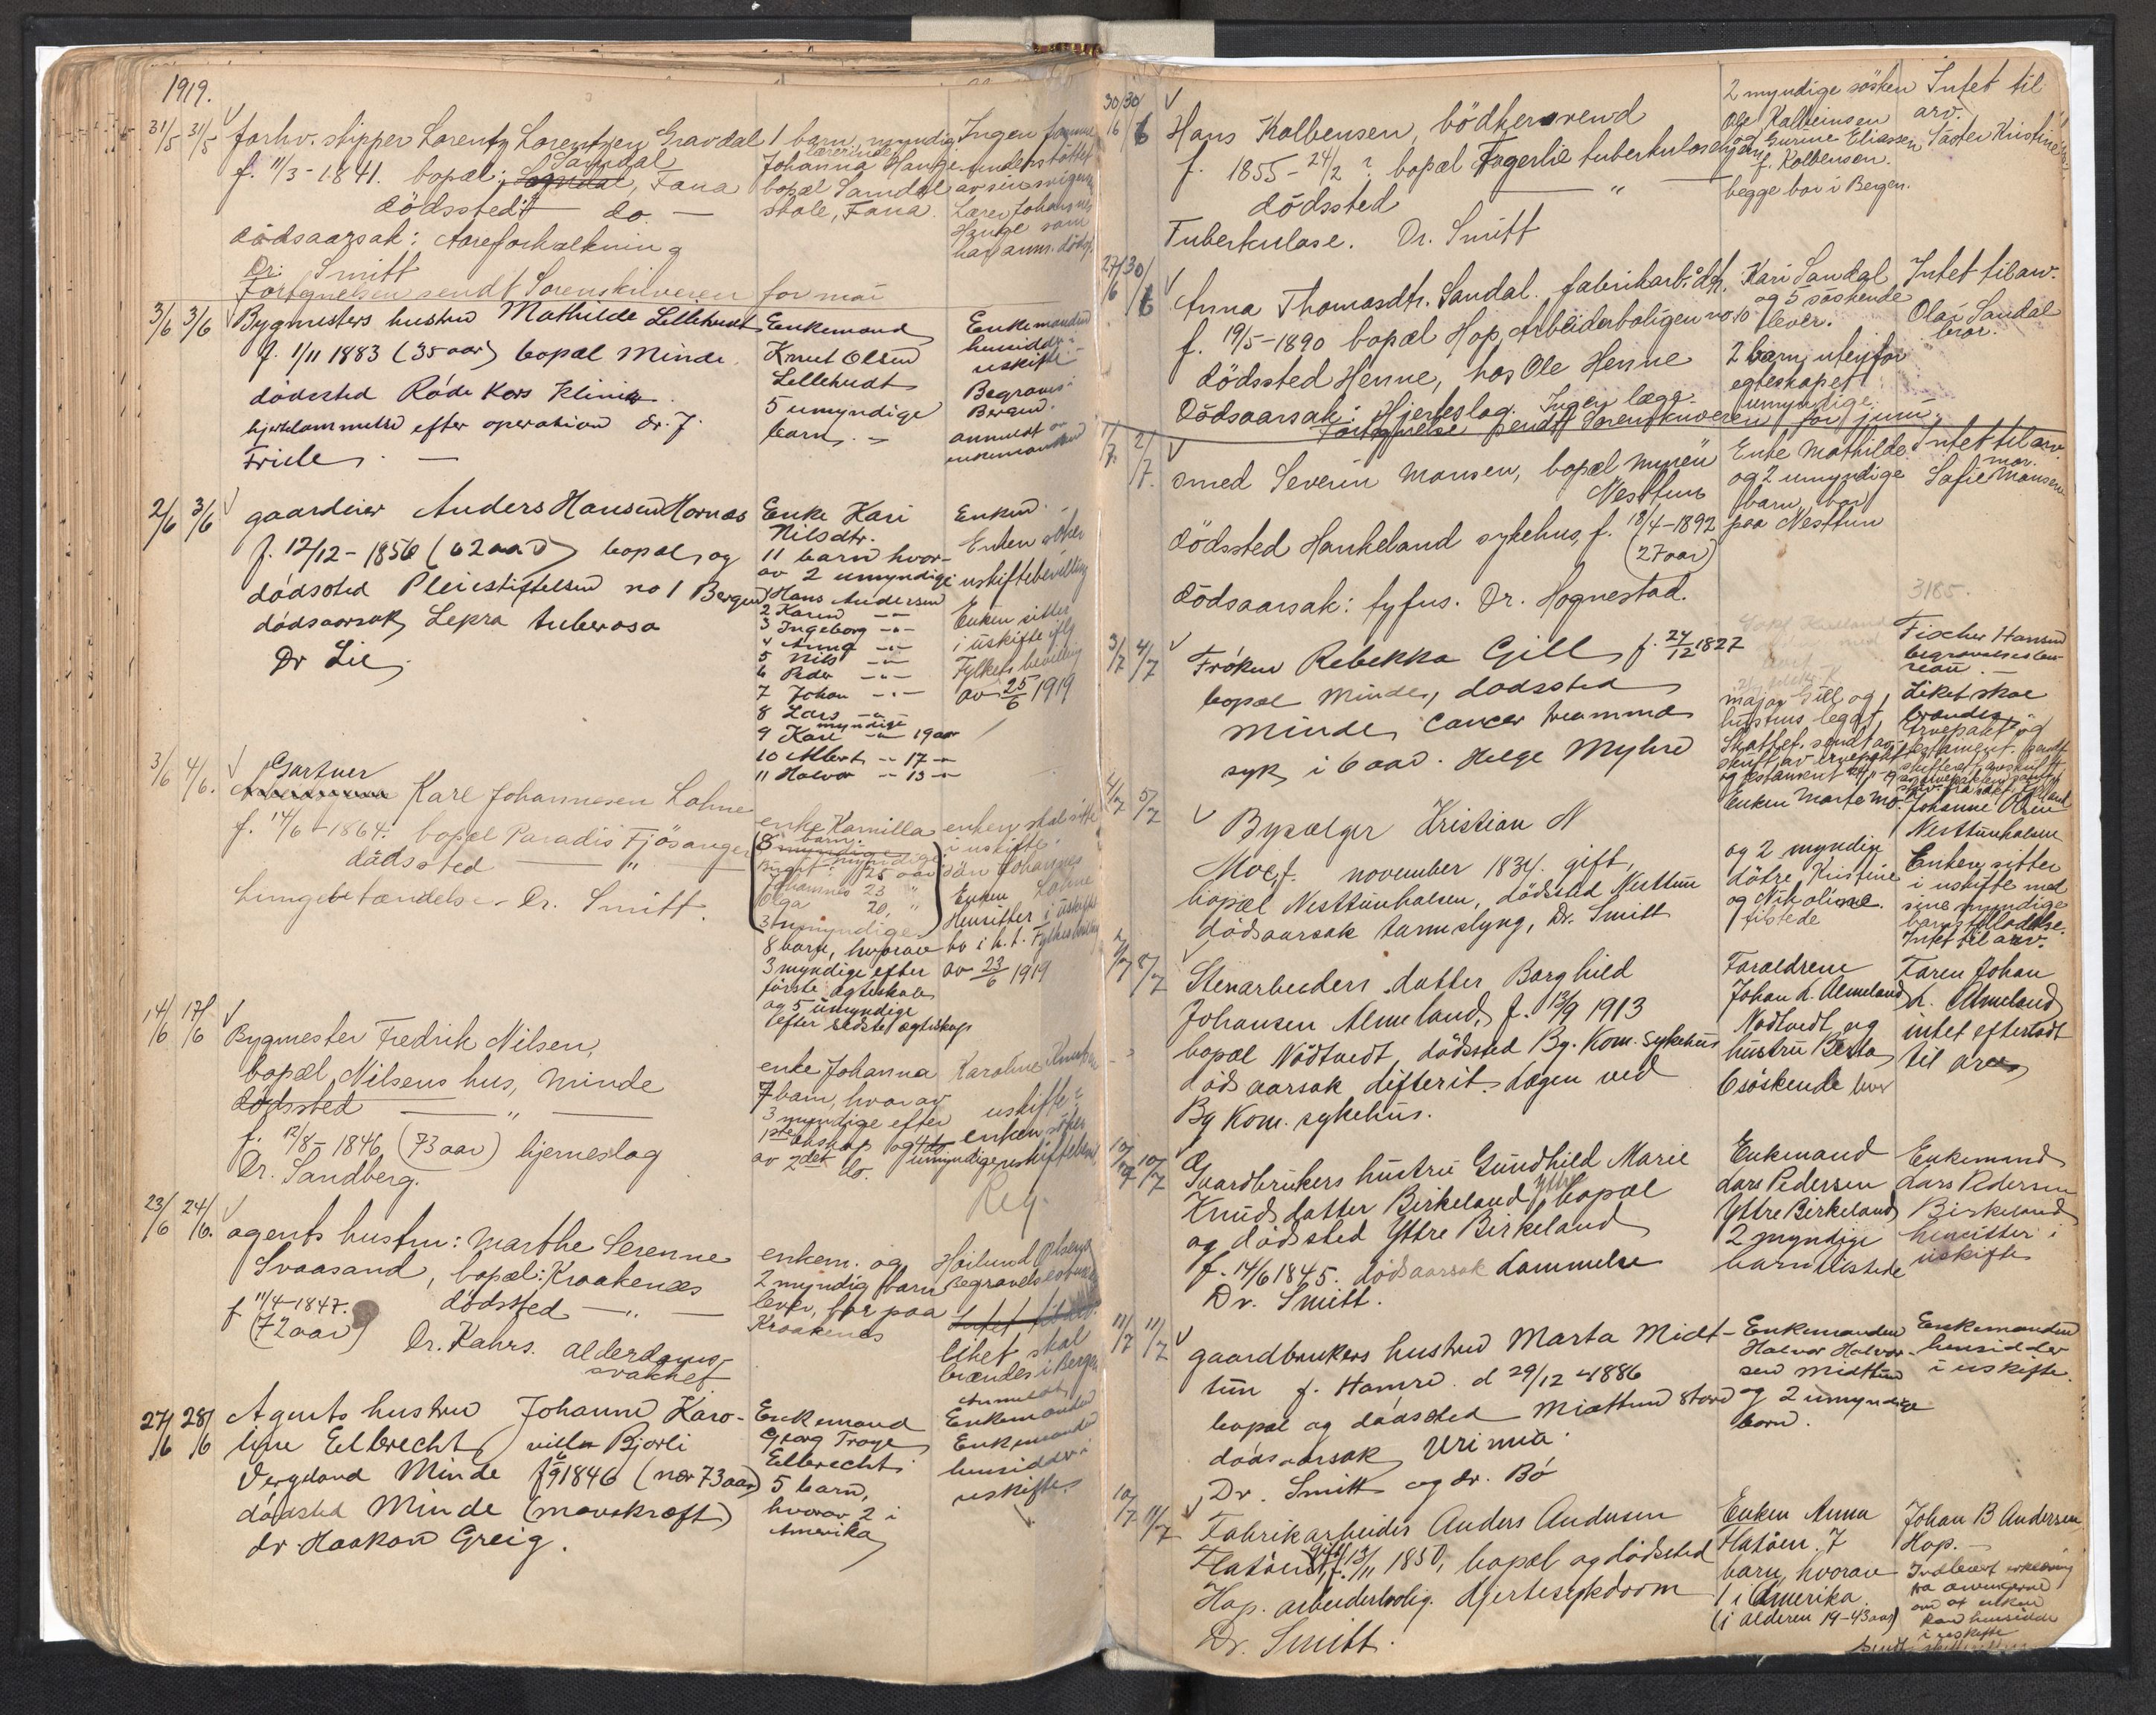 1919.
31/5 31/5 forhv. skipper Lorentz Lorentzen Gravdal
f. 11/3 - 1841. bopæl: Sogndal, Sandal, Fana
dödssted: " do. —
dödsaarsak: Aareforkalkning
Dr. Smitt
1 barn, myndig
Johanna Hauge
bopæl Sandal
skole, Fana.
Ingen
understöttet
av sen svigersøn
Lærer Johannes
Hauge som
har anm. dödsf.
Fortegnelsen sendt Sorenskriveren for mai
3/6 3/6 Bygmesters hustru Mathilde Lillehudt
f. 1/11 1883 (35 aar) bopæl Minde.
dödssted Röde Kors Klinik.
hjertelammelse efter operation dr. J.
Friele. —
Enkemand
Knut Olsen
Lillehudt
5 umyndige
barn. —
Enkemanden
hensidder i
uskifte
Begraves i
Bergen.
anmeldt av
enkemanden
2/6 3/6 gaardeier Anders Hansen Hornæs
f. 12/12 - 1856 (62 aar) bopæl og
dödssted Pleiestiftelsen no 1 Bergen
dödsaarsak Lepra tuberosa
Dr Lie
Enke Kari
Nilsdtr.
11 barn hvor-
av 2 umyndige
1 Hans Andersen
2 Karen — " —
3 Ingeborg — " —
4 Anna — " —
5 Nils — " —
6 Peder — " —
7 Johan — " —
8 Lars — " —
myndige
9 Kari — " — 19 aar
10 Albert — " — 17 — " —
11 Halvor — " — 13 — " —
Enken. —
Enken söker
uskiftebevilling
Enken sitter
i uskifte iflg
Fylkets bevilling
av 25/6 1919
3/6 4/6. Gartner
Karl Johannesen Lohne
f. 14/6 - 1864. bopæl Paradis Fjösanger
dödssted — " —
Lungebetændelse - Dr. Smitt.
enke Kamilla
8 barn.
myndige
25 aar
Johannes 23 "
Olga 20, "
3 umyndige
8 barn, hvorav
3 myndige efter
förste ægteskab
og 5 umyndige
efter sidste ægteskap
enken skal sitte
i uskifte.
sön Johannes
Lohne
Enken
Hensitter i uskifte
bo i h. t. Fylkes bevilling
av 23/6 1919
14/6 17/6 Bygmester Fredrik Nilsen,
bopæl Nilsens hus, Minde
dödssted — " —
f. 12/8 - 1846 (73 aar) hjerneslag
Dr. Sandberg.
enke Johanna
7 barn, hvorav
3 myndige efter
1ste ekskap og 4 do
av 2det do. umyndige
Karoline Knutsen
uskifte?
enken söker
uskiftebevil
Reg.
23/6 24/6. agents hustru: Marthe Serenne
Svaasand, bopæl: Kraakenes
f 11/4 - 1847. dödssted — " —
(72 aar) Dr. Kahrs. alderdoms-
svakhet
enkem. og
2 myndig barn
lever, bor paa
Kraakenes
Höilund Olsens
Begravelsesbureau
Intet til arv.
Liket skal
brændes i Bergen
27/6 28/6 Agents hustru Johanne Karo-
line Eilbrecht, villa Bjorli
Vergeland Minde f 6/9 1846 (nær 73 aar)
dödssted Minde (mavekræft)
dr. Haakon Greig.
Enkemand
Georg Troye
Eilbrecht
5 barn,
hvorav 2 i
Amerika
Anmeldt
Enkemanden
Enkemanden
hensidder i
uskifte
30/6 30/6 Hans Kolbensen, bödkersvend
f. 1855 - 24/2 ? bopæl Fagerlie tuberkulosehjem
dödssted — " —
Tuberkulose. Dr. Smitt
2 myndige sösken
Ole Kolbeinsen
og Gurine Eliassen
f. Kolbensen.
begge bor i Bergen.
Intet til
arv.
Söster Kristine
27/6 30/6 Anna Thomasdtr. Sandal. fabrikarb. dtr.
f. 19/5 - 1890 bopæl Hop, Arbeiderboligen no 10
dödssted Henne, hos Ole Henne
Dödsaarsak: Hjerteslag. Ingen læge
Kari Sandal
og 5 söskende
lever.
2 barn, utenfor
egteskapet
umyndige.
Intet til arv.
Olai Sandal
bror.
Fortegnelse sendt Sorenskriveren for juni.
1/7. 2/7. smed Severin Monsen, bopæl Myren
Nesttun
dödssted Haukeland sykehus, f. 18/4 - 1892
(27 aar)
dödsaarsak: tyfus. Dr. Hognestad.
Enke Mathilde
og 2 umyndige
barn, bor
paa Nesttun
Intet til arv.
mor.
Sofie Monsen
3185.
3/7 4/7 Fröken Rebekka Gill f. 24/12 1827
bopæl Minde, dödssted
Minde, Cancer mamma
syk i 6 aar. Helge Myhre
major Gill og
hustrus legat,
Skattet. sendt av-
skrift av arvepakt
og testament
Fischer Hansens
begravelsesbu-
reau.
Liket skal
brændes.
Arvepakt og
testament.
4/7 5/7 Bysælger Kristian N
Moe, f. november 1834. gift,
bopæl Nesttunhalsen, dödssted Nesttun
dödsaarsak tarmslyng, Dr. Smitt
Enken Marte Moe
og 2 myndige
dötre, Kristine
og Nikoline.
tilstede
Johanne Olsen
Nesttunhalsen
Enken sitter
i uskifte med
sine myndige
barns tilladelse.
Intet til arv.
8/7 Stenarbeiders datter Borghild
Johansen Almeland, f. 13/9 1913
bopæl Nödtvedt, dödssted By. Kom. sykehus
dödsaarsak difterit. Lægen ved
By Kom. sykehus.
Foraldrene
Johan L. Almeland
Nödtvedt og
hustru Berta
6 söskende lever
Faren Johan
L. Almeland
intet efterladt
til arv
10/7 10/7 Gaardbrukers hustru Gundhild Marie
Knudsdatter Birkeland Ytre, bopæl
og dödssted Yttre Birkeland
f. 14/6 1845. dödsaarsak Lammelse
Dr. Smitt.
Enkemand
Lars Pedersen
Yttre Birkeland
2 myndige
barn tilstede
Enkemand
Lars Pedersen
Birkeland
hensitter i
uskifte
11/7 11/7 gaardbrukers hustru Marta Midt-
tun f. Hamre d 29/12 1886
bopæl og dödssted Midttun Stord
dödsaarsak Urimia.
Dr. Smitt og dr. Bö
Enkemanden
Halvor Halvor-
sen Midttun
og 2 umyndige
barn.
Enkemanden
hensidder
i uskifte.
10/7 11/7 Fabrikarbeider Anders Andersen
Flatöen, gift f. 13/11 1850, bopæl og dödssted
Hop. arbeiderbolig. Hjertesykdoom
Dr. Smitt.
Enken Anna
Flatöen. 7
barn, hvorav
1 i Amerika.
(i alderen 19-43 aar)
Johan B Andersen
Hop. —
Indlevert erklæring
fra arvingerne
om at enken
kan hensidde
i uskifte